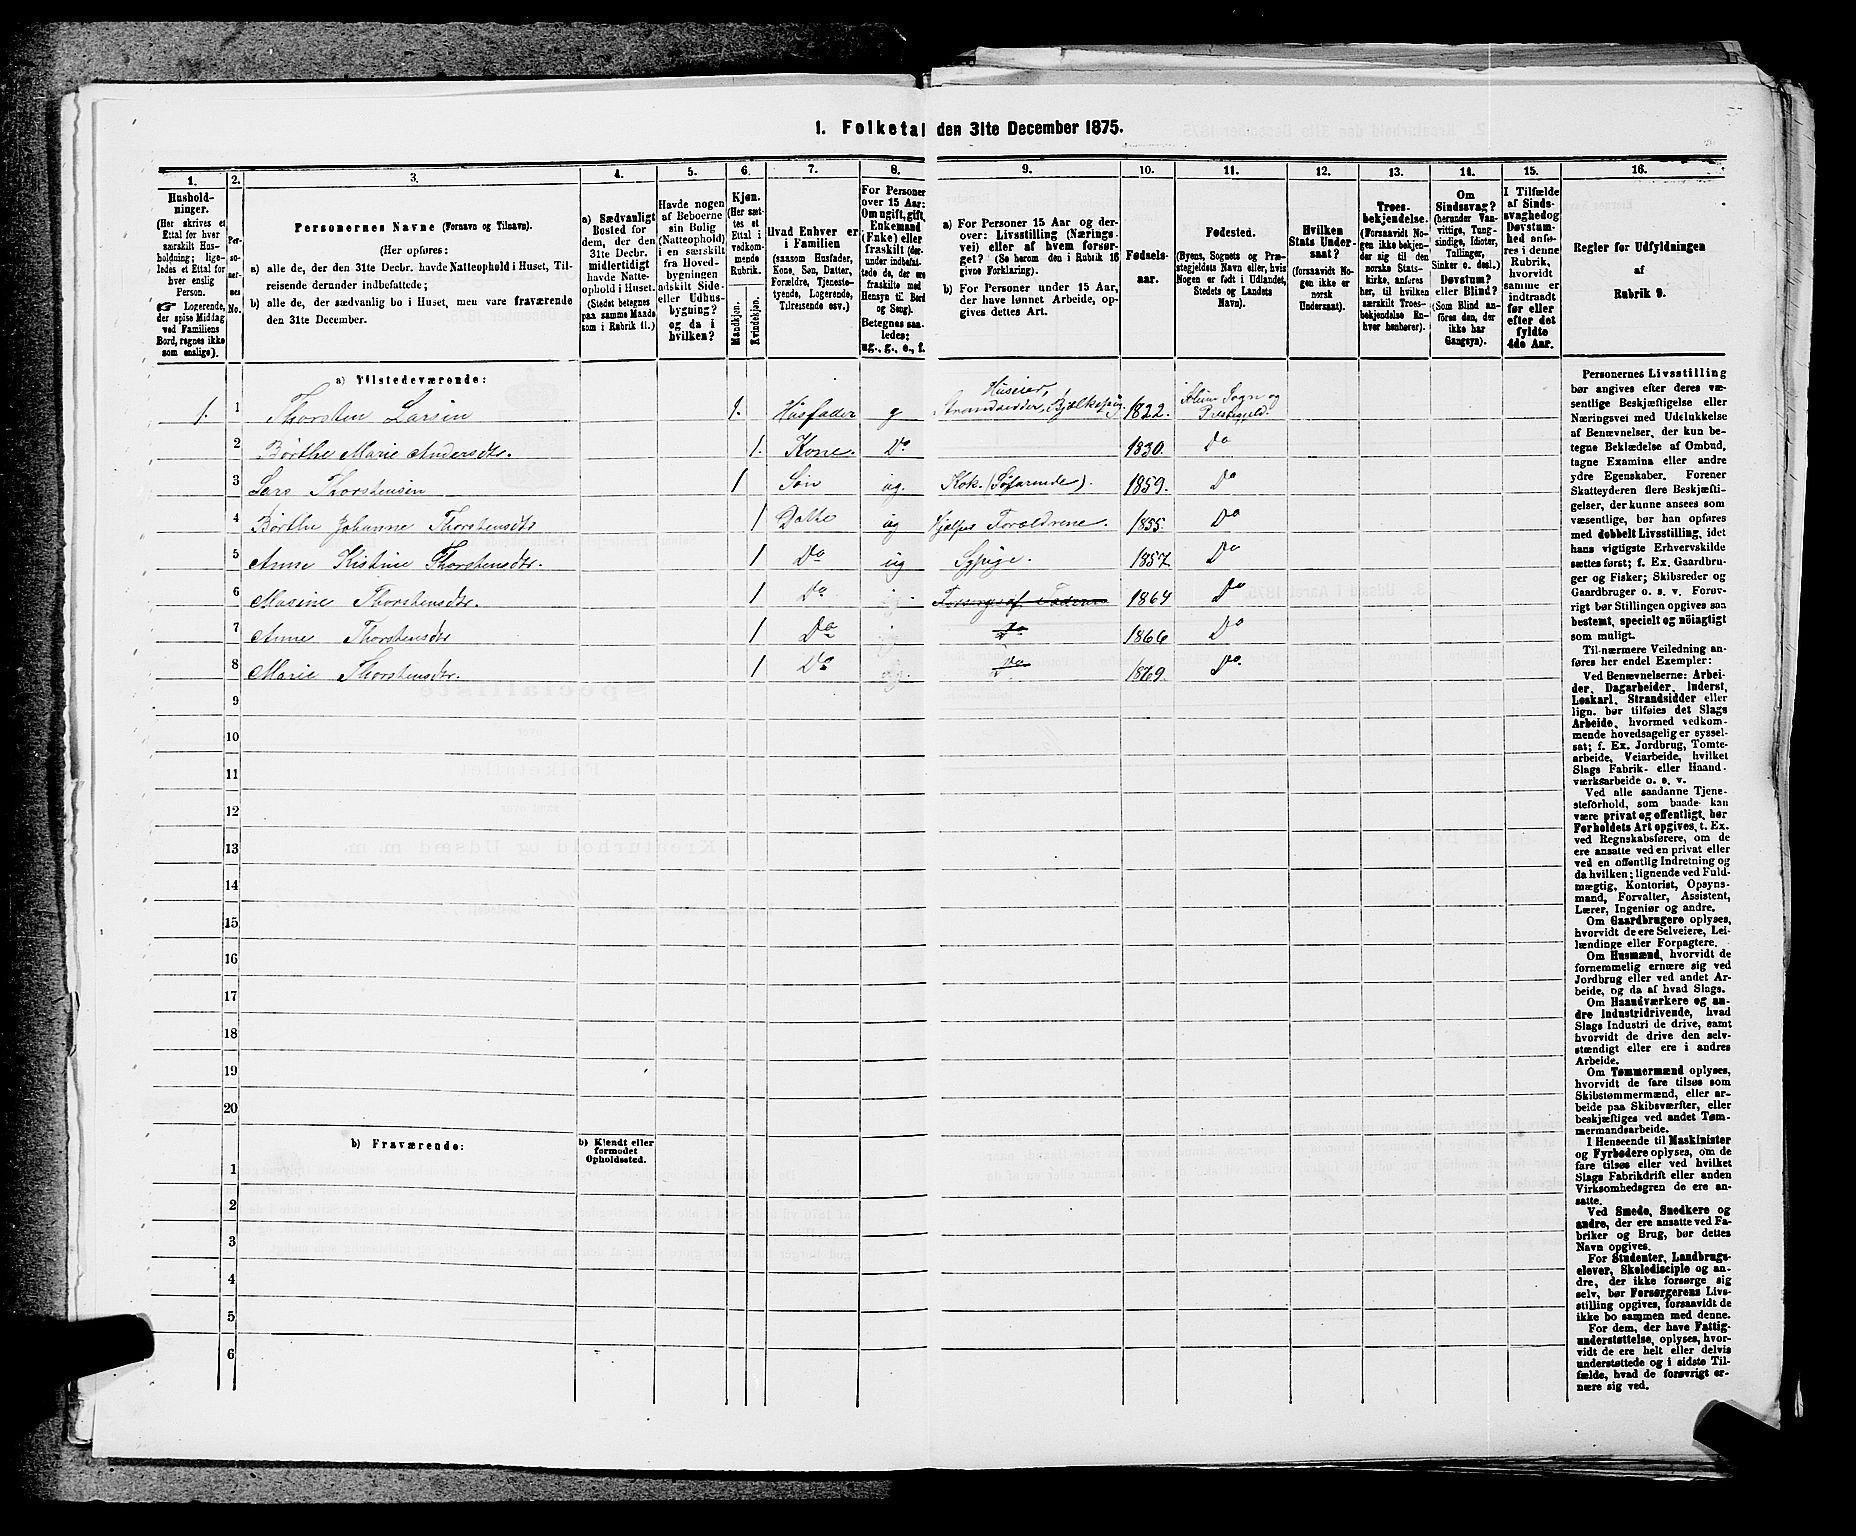 1. Folketal den 31te December 1875.
1.
Hushold-
ninger.
(Her skrives et
Ettal for hver
særskilt Hus-
holdning; lige-
ledes et Ettal for
hver enslig
Person.
☞ Logerende,
der spise Middag
ved Familiens
Bord, regnes ikke
som enslige).
2.
Per-
so-
ner-
nes
No.
3.
Personernes Navne (Fornavn og Tilnavn).
(Her opføres:
a) alle de, der den 31te Decbr. havde Natteophold i Huset, Til-
reisende derunder indbefattede;
b) alle de, der sædvanlig bo i Huset, men vare fraværende
den 31te December.
4.
a) Sædvanligt
Bosted for
dem, der den
31te Decbr.
midlertidigt
havde Natte-
ophold i Huset.
(Stedet betegnes
paa samme Maade
som i Rubrik 11.)
5.
Havde nogen
af Beboerne
sin Bolig
(Natteophold)
i en særskilt
fra Hoved-
bygningen
adskilt Side-
eller Udhus-
bygning?
og da i
hvilken?
6.
Kjøn.
(Her sæt-
tes et
Ettal i
vedkom-
mende
Rubrik.
Mandkjøn.
Kvindekjøn.
7.
Hvad Enhver er
i Familien
(saasom Husfader,
Kone, Søn, Datter,
Forældre, Tjeneste-
tyende, Logerende,
Tilreisende osv.)
8.
For Personer
over 15 Aar:
Om ugift, gift,
Enkemand
(Enke) eller
fraskilt (der-
under indbefat-
tede de, der ere
fraskilte med
Hensyn til Bord
og Seng).
Betegnes saa-
ledes:
ug., g., e., f.
9.
a) For Personer 15 Aar og der-
over: Livsstilling (Nærings-
vei) eller af hvem forsør-
get? (Se herom den i Rubrik 16
givne Forklaring).
b) For Personer under 15 Aar,
der have lønnet Arbeide, op-
gives dettes Art.
10.
Fødsels-
aar.
11.
Fødested.
(Byens, Sognets og Præ-
stegjeldets Navn eller, hvis
Nogen er født i Udlandet,
Stedets og Landets
Navn).
12.
Hvilken
Stats Under-
saat?
(forsaavidt No-
gen ikke er
norsk
Undersaat).
13.
Troes-
bekjendelse.
(Forsaavidt No-
gen ikke bekjen-
der sig til den
norske Stats-
kirke, anføres
her, til hvilken
særskilt Troes-
bekjendelse En-
hver henhører).
14.
Om
Sindssvag?
(herunder Van-
vittige, Tung-
sindige, Idioter,
Tullinger,
Sinker o. desl.)
Døvstum?
eller Blind?
(Som Blind an-
føres den, der
ikke har
Gangsyn).
15.
I Tilfælde
af Sinds-
svaghed og
Døvstum-
hed anfø-
res i denne
Rubrik,
hvorvidt
samme er
indtraadt
før eller
efter det
fyldte
4de Aar.
16.
Regler for Udfyldningen
af
Rubrik 9.
a) Tilstedeværende:
1. 1 Thorsten Larsen 1. Husfader g Huseier, Strandsidder, 1822. Sogn og Prestegjeld.
2 Børthe Marie Andersdtr. 1. Kone. Do 1830. Do
3 Lars Thorstensen 1 Søn ug. Kok. (Søfarende). 1859. Do
4 Børthe Johanne Thorstensdtr 1 Datte ug Hjelper Forældrene. 1855. Do
5 Anne Kistine Thorstensdtr. 1 Do ug Sypige. 1857. Do
6 Masine Thorstensdtr. 1 Do Forsørges af Faderen 1864 Do
7 Anne Thorstensdtr 1 Do Do 1866 Do
8 Marie Thorstensdtr. 1 Do Do 1869. Do.
9
10
11
12
13
14
15
16
17
18
19
20
b) Fraværende:
b) Kjendt eller
formodet
Opholdssted.
1
2
3
4
5
6
Personernes Livsstilling
bør angives efter deres væ-
sentlige Beskjæftigelse eller
Næringsvei med Udelukkelse
af Benævnelser, der kun be-
tegne Beklædelse af Ombud,
tagne Examina eller andre
ydre Egenskaber. Forener
Skatteyderen flere Beskjæfti-
gelser, der kunne ansees som
væsentlige, bør han opføres
med dobbelt Livsstilling, idet
hans vigtigste Erhvervskilde
sættes først; f. Ex. Gaardbru-
ger og Fisker; Skibsreder og
Gaardbruger o. s. v. Forøv-
rigt bør Stillingen opgives saa
bestemt, specielt og nöiagtigt
som muligt.
Til nærmere Veiledning an-
føres her endel Exempler:
Ved Benævnelserne: Arbei-
der, Dagarbeider, Inderst,
Løskarl, Strandsidder eller
lign. bør tilføies det Slags
Arbeide, hvormed vedkom-
mende hovedsagelig er syssel-
sat; f. Ex. Jordbrug, Tomte-
arbeide, Veiarbeide, hvilket
Slags Fabrik- eller Haand-
værksarbeide o. s. v.
Ved alle saadanne Tjene-
steforhold, som baade kan
være privat og offentligt, bør
Forholdets Art opgives, t. Ex.
ved Regnskabsførere, om de
ere ansatte ved en privat eller
ved en offentlig Indretning og
da hvilken; lignende ved Fuld-
mægtig, Kontorist, Opsyns-
mand, Forvalter, Assistent,
Lærer, Ingeniør og andre.
Om Gaardbrugere oplyses,
hvorvidt de ere Selveiere, Lei-
lændinge eller Forpagtere.
Om Husmænd, hvorvidt de
fornemmelig ernære sig ved
Jordbrug eller ved andet Ar-
beide, og da af hvad Slags.
Om Haandværkere og an-
dre Industridrivende, hvad
Slags Industri de drive, samt
hvorvidt de drive den selv-
stændigt eller ere i andres
Arbeide.
Om Tømmermænd oplyses,
hvorvidt de fare tilsøs som
Skibstømmermænd, eller ar-
beide paa Skibsværfter, eller
beskjæftiges ved andet Tøm-
mermandsarbeide.
I Henseende til Maskinister
og Fyrbødere oplyses, om de
fare tilsøs eller ved hvilket
Slags Fabrikdrift eller anden
Virksomhedsgren de ere an-
satte.
Ved Smede, Snedkere og
andre, der ere ansatte ved Fa-
briker og Brug, bør dettes
Navn opgives.
For Studenter, Landbrugs-
elever, Skoledisciple og an-
dre, der ikke forsørge sig
selv, bør Forsørgerens Livs-
stilling opgives, forsaavidt de
ikke bo sammen med denne.
For dem, der have Fattig-
understøttelse, oplyses, hvor-
vidt de ere helt eller delvis
understøttede og i sidste Til-
fælde, hvad de forøvrigt er-
nære sig ved.